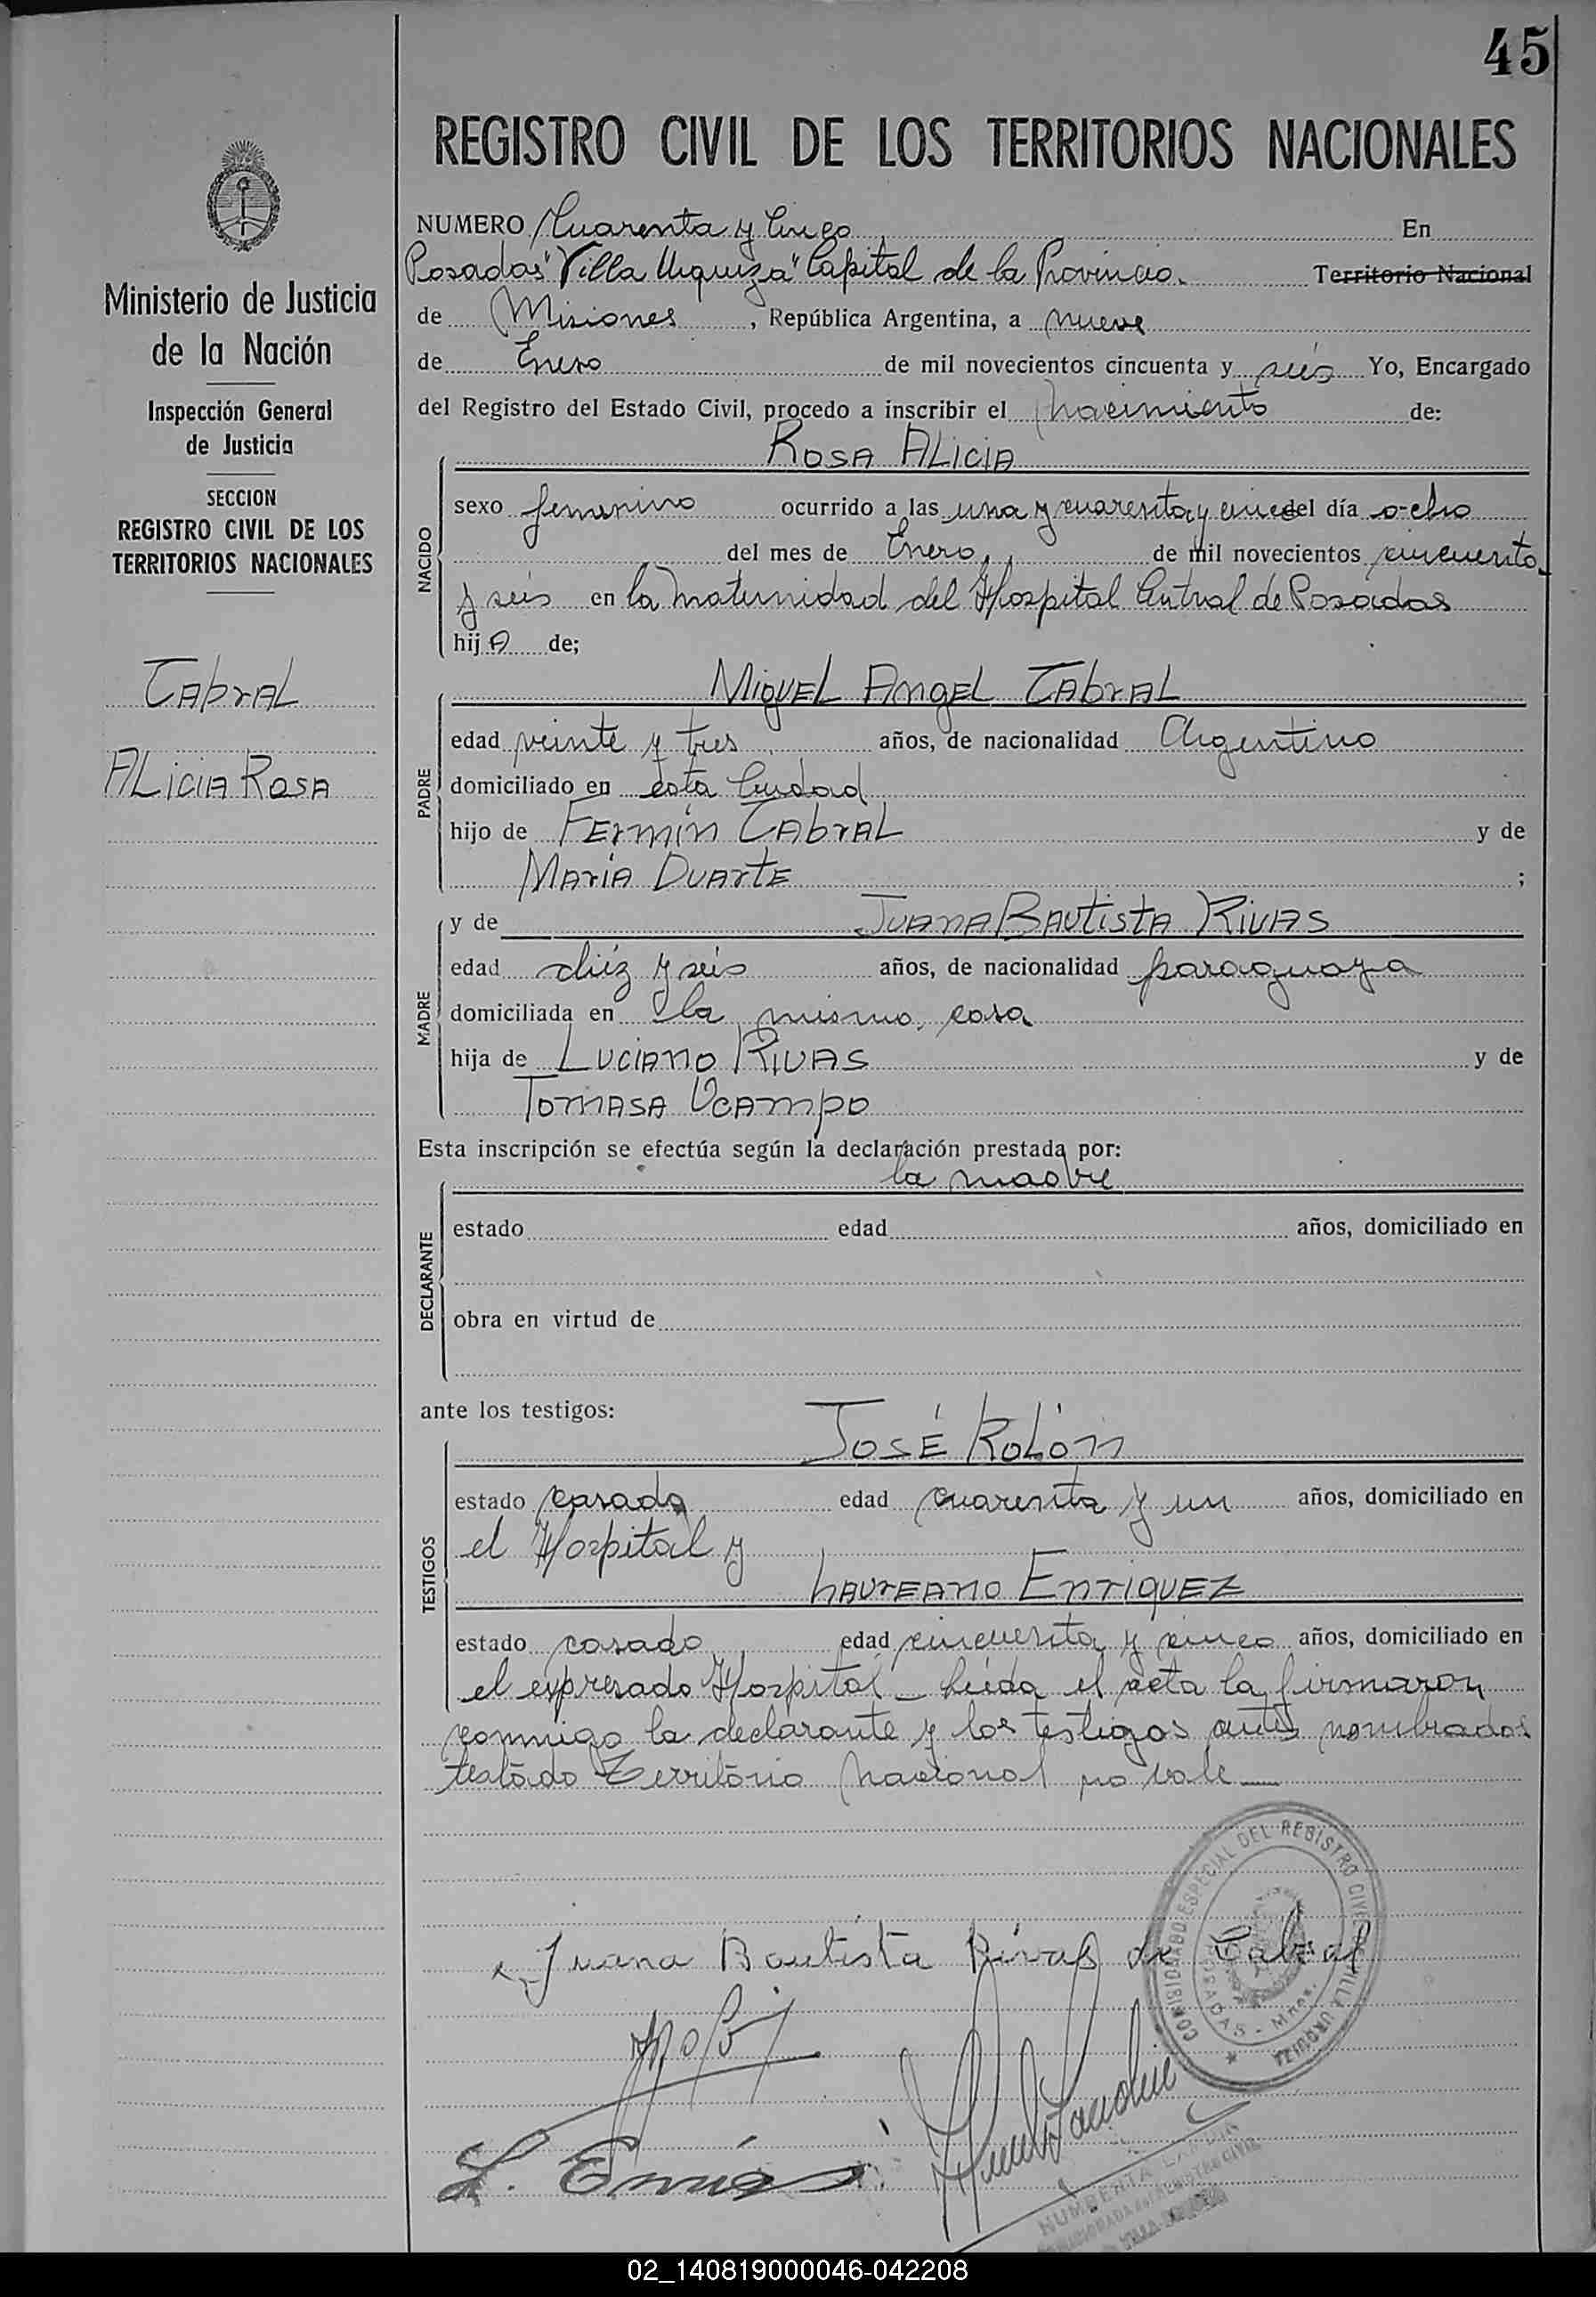 45
REGISTRO CIVIL DE LOS TERRITORIOS NACIONALES
Ministerio de Justicia
de la Nación
Inspección General
de Justicia
SECCION
REGISTRO CIVIL DE LOS
TERRITORIOS NACIONALES
Cabral
Alicia Rosa
NUMERO Cuarenta y Cinco En
Posadas "Villa Urquiza" Capital de la Provincia. Territorio Nacional
de Misiones, República Argentina, a nueve
de Enero de mil novecientos cincuenta y seis Yo, Encargado
del Registro del Estado Civil, procedo a inscribir el nacimiento de:
Rosa Alicia
NACIDO
sexo femenino ocurrido a las una y cuarenta y cinco del día ocho
del mes de Enero de mil novecientos cincuenta
y seis en la Maternidad del Hospital Central de Posadas
hija de;
Miguel Angel Cabral
PADRE
edad veinte y tres años, de nacionalidad Argentino
domiciliado en esta Ciudad
hijo de Fermín Cabral y de
María Duarte ;
y de Juana Bautista Rivas
MADRE
edad diez y seis años, de nacionalidad paraguaya
domiciliada en la misma casa
hija de Luciano Rivas y de
Tomasa Ocampo
Esta inscripción se efectúa según la declaración prestada por:
la madre
DECLARANTE
estado edad años, domiciliado en
obra en virtud de
ante los testigos:
José Rolón
TESTIGOS
estado casado edad cuarenta y un años, domiciliado en
el Hospital y
Laureano Enriquez
estado casado edad cincuenta y cinco años, domiciliado en
el expresado Hospital - Leida el acta la firmaron
conmigo la declarante y los testigos antes nombrados
testado Territorio Nacional no vale
COMISIONADO ESPECIAL DEL REGISTRO CIVIL VILLA URQUIZA
POSADAS - Mnes.
Juana Bautista Rivas de Cabral
L. Enriquez
HUMBERTA
REGISTRO CIVIL
02_140819000046-042208